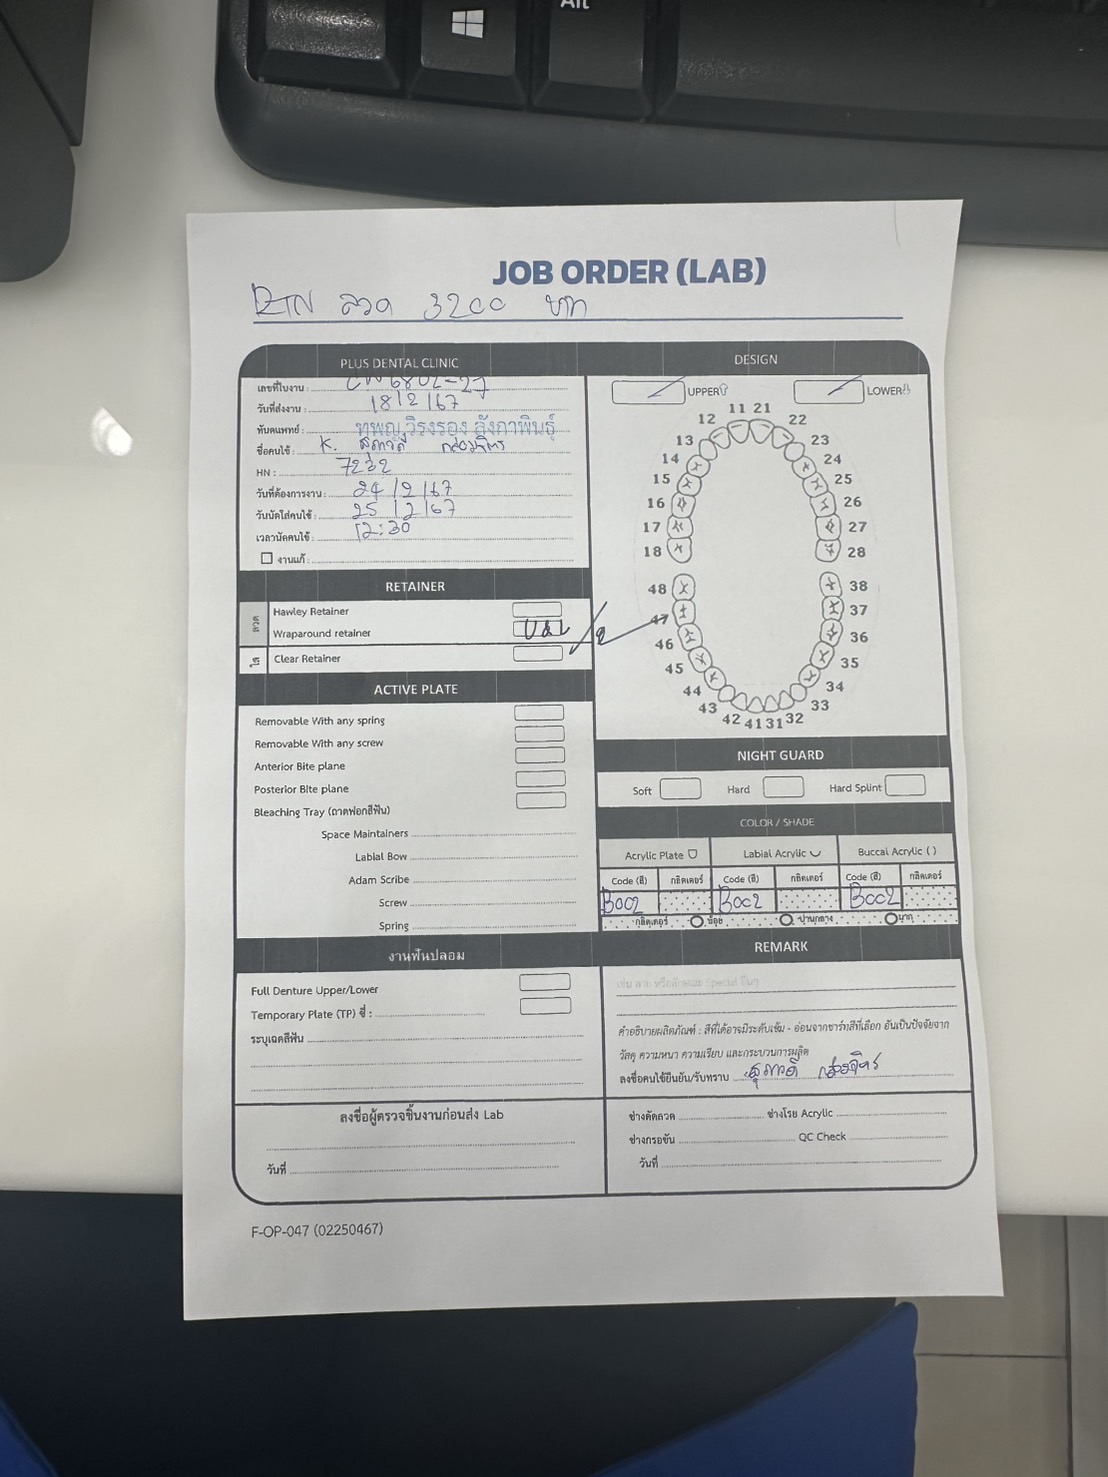 Alt
JOB ORDER (LAB)
RTN ลวด 3200 บาท
PLUS DENTAL CLINIC
เลขที่ใบงาน : CW6802-27
วันที่ส่งงาน : 18/2/67
ทันตแพทย์ : ทพญ.วิรงรอง ลังกาพินธุ์
ชื่อคนไข้ : K. สุภาวดี กล่อมจิตร
HN : 7232
วันที่ต้องการงาน : 24/2/67
วันนัดใส่คนไข้ : 25/2/67
เวลานัดคนไข้ : 12:30
งานแก้ :
DESIGN
UPPER
LOWER
11 21
12 22
13 23
14 24
15 25
16 26
17 27
18 28
48 38
47 37
46 36
45 35
44 34
43 33
42 41 31 32
RETAINER
ลวด
Hawley Retainer
Wraparound retainer U&L / 2
ใส
Clear Retainer
ACTIVE PLATE
Removable With any spring
Removable With any screw
Anterior Bite plane
Posterior Bite plane
Bleaching Tray (ถาดฟอกสีฟัน)
Space Maintainers
Labial Bow
Adam Scribe
Screw
Spring
NIGHT GUARD
Soft Hard Hard Splint
COLOR / SHADE
Acrylic Plate Labial Acrylic Buccal Acrylic ( )
Code (สี) กลิตเตอร์ Code (สี) กลิตเตอร์ Code (สี) กลิตเตอร์
B002 B002 B002
กลิตเตอร์ น้อย ปานกลาง มาก
งานฟันปลอม
Full Denture Upper/Lower
Temporary Plate (TP) ซี่ :
ระบุเฉดสีฟัน
REMARK
เช่น ลาย หรือลักษณะ Special อื่นๆ
คำอธิบายผลิตภัณฑ์ : สีที่ได้อาจมีระดับเข้ม - อ่อนจากชาร์ทสีที่เลือก อันเป็นปัจจัยจาก
วัสดุ ความหนา ความเรียบ และกระบวนการผลิต
ลงชื่อคนไข้ยืนยัน/รับทราบ สุภาวดี กล่อมจิตร
ลงชื่อผู้ตรวจชิ้นงานก่อนส่ง Lab
วันที่
ช่างดัดลวด ช่างโรย Acrylic
ช่างกรอขัน QC Check
วันที่
F-OP-047 (02250467)